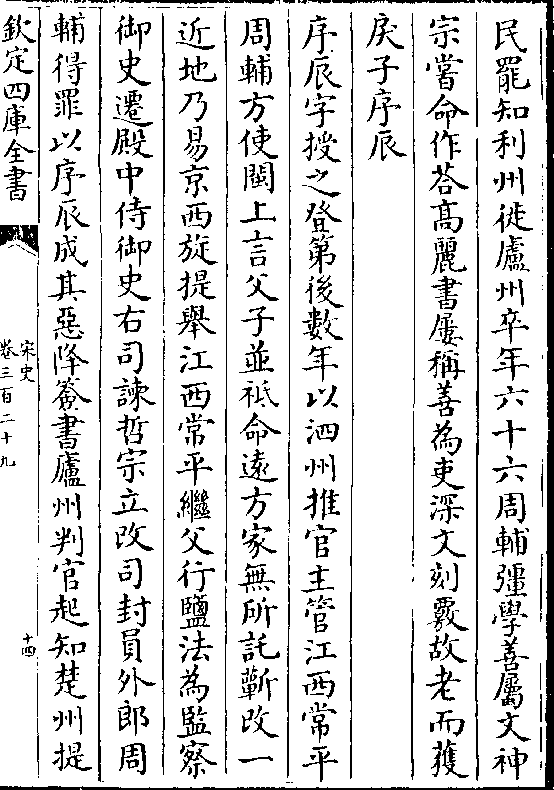 民罷知利州徙廬州卒年六十六周輔彊學善屬文神
宗嘗命作荅髙麗書屢稱善為吏深文刻覈故老而獲
戾子序辰
序辰字授之登第後數年以泗州推官主管江西常平
周輔方使閩上言父子並祗命逺方家無所託蘄改一
近地乃易京西旋提舉江西常平繼父行鹽法為監察
御史遷殿中侍御史右司諫哲宗立改司封員外郎周
輔得罪以序辰成其惡降簽書廬州判官起知楚州提
欽定四庫全書
宋史
卷三百二十九
十四